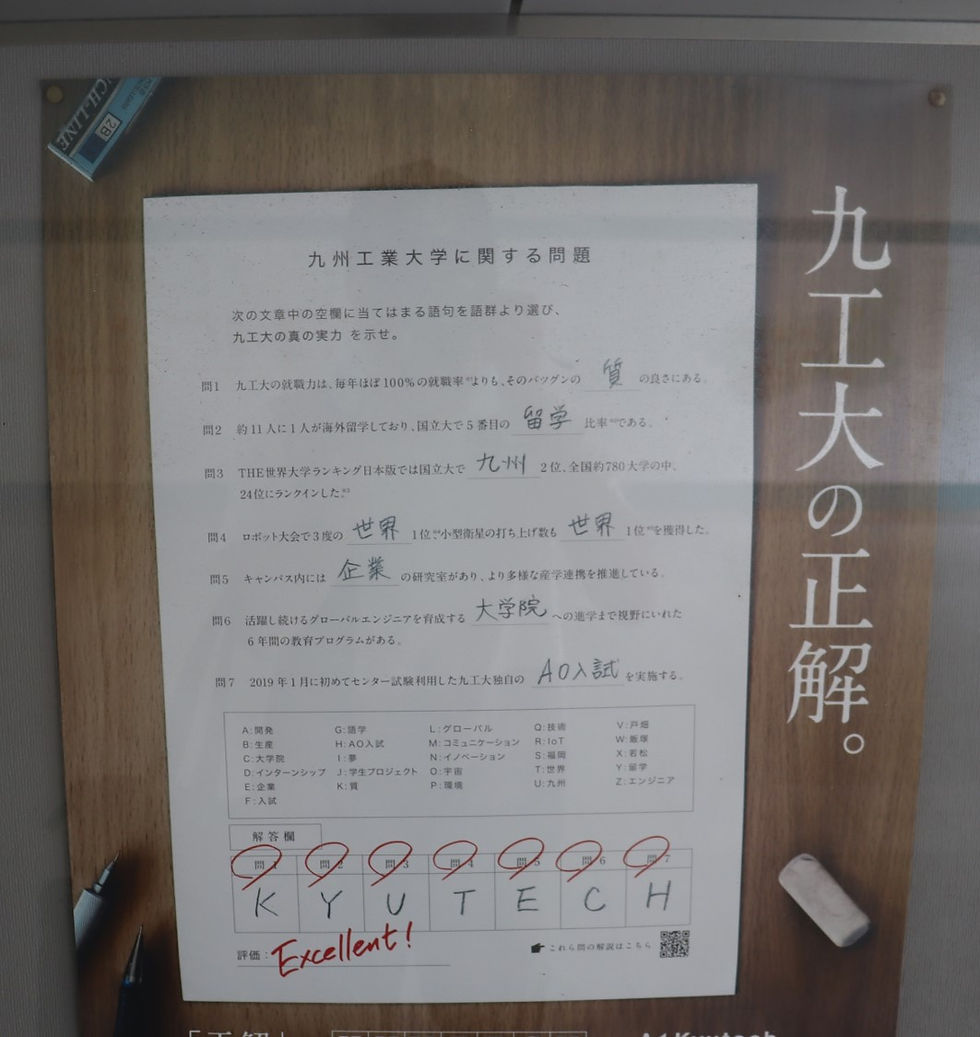 2B
九工大の正解。
九州工業大学に関する問題
次の文章中の空欄に当てはまる語句を語群より選び、
九工大の真の実力 を示せ。
問1 九工大の就職力は、毎年ほぼ100%の就職率よりも、そのバツグンの 質 の良さにある。
問2 約11人に1人が海外留学しており、国立大で5番目の 留学 比率である。
問3 THE世界大学ランキング日本版では国立大で 九州 2位、全国約780大学の中、
24位にランクインした。
問4 ロボット大会で3度の 世界 1位 小型衛星の打ち上げ数も 世界 1位 を獲得した。
問5 キャンパス内には 企業 の研究室があり、より多様な産学連携を推進している。
問6 活躍し続けるグローバルエンジニアを育成する 大学院 への進学まで視野にいれた
6年間の教育プログラムがある。
問7 2019年1月に初めてセンター試験利用した九工大独自の AO入試 を実施する。
A:開発 G:語学 L:グローバル Q:技術 V:戸畑
B:生産 H:AO入試 M:コミュニケーション R:IoT W:飯塚
C:大学院 I:夢 N:イノベーション S:福岡 X:若松
D:インターンシップ J:学生プロジェクト O:宇宙 T:世界 Y:留学
E:企業 K:質 P:環境 U:九州 Z:エンジニア
F:入試
解答欄
問1 問2 問3 問4 問5 問6 問7
K Y U T E C H
評価: Excellent!
これら問の解説はこちら